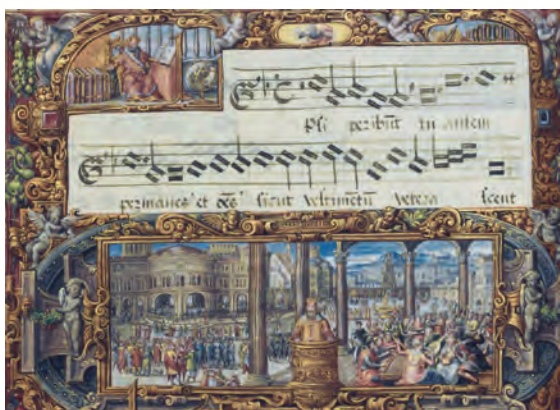 Psi peribūt tu autem
permanes et oēs sicut vestimētū vetera scent